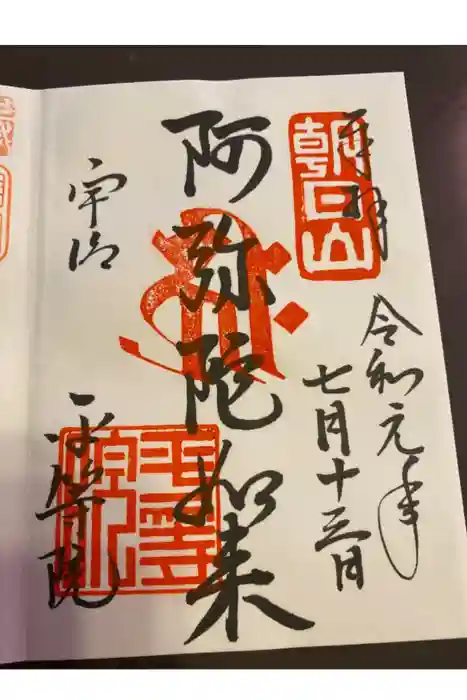 奉拝
朝日山
令和元年
七月十三日
阿弥陀如来
宇治
平等院
平等院